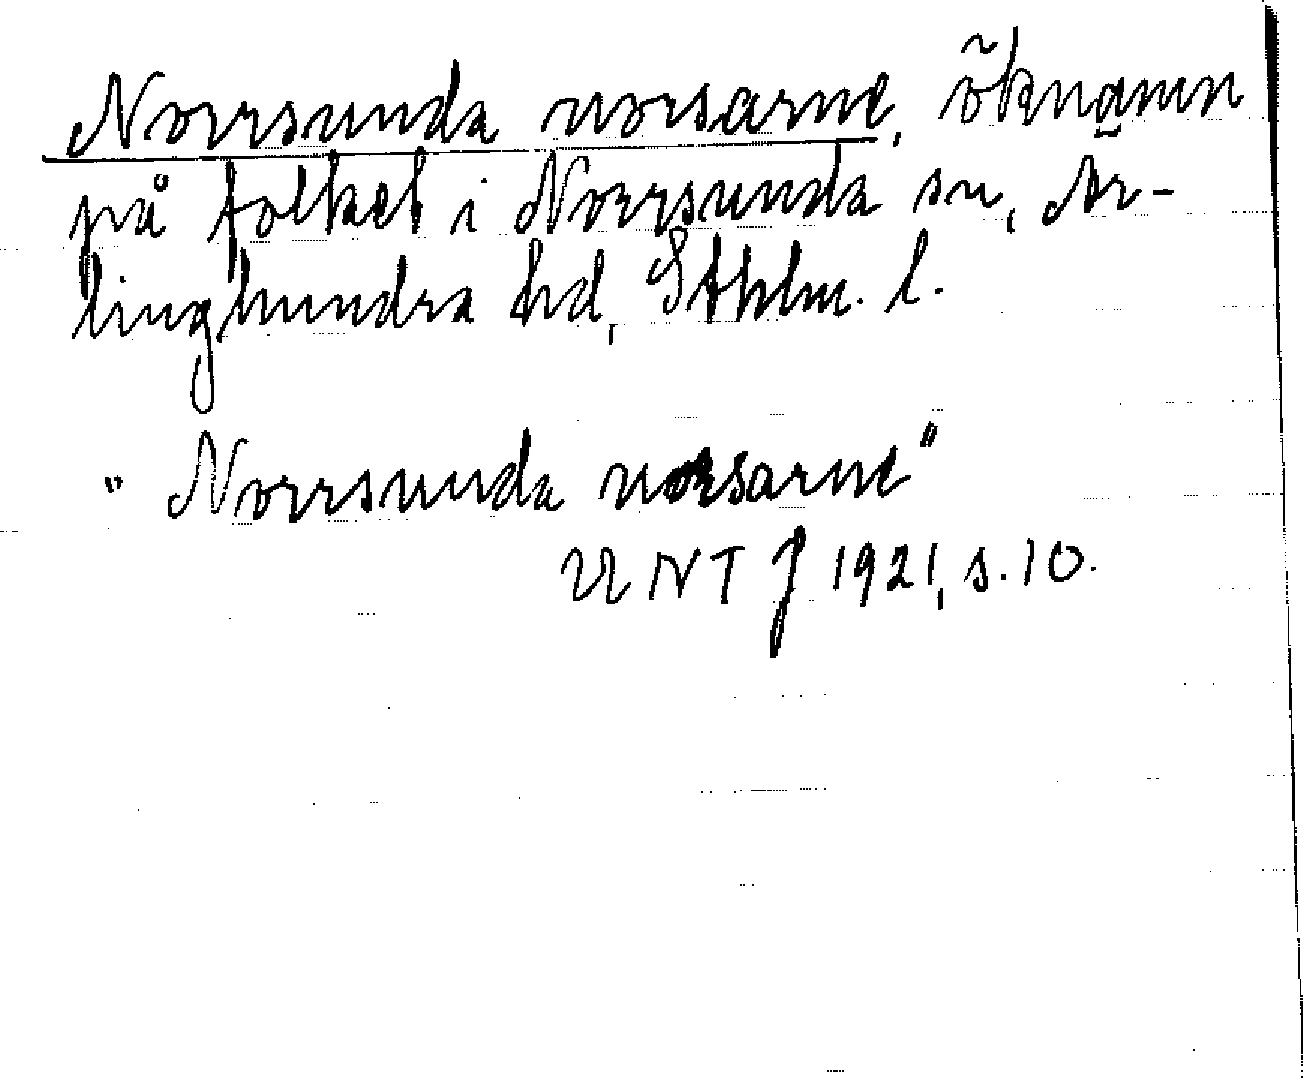 Norrsunda norsarne, öknamn
på folket i Norrsunda sn, Ar-
linghundra hd, Sthlm. l.
"Norrsunda norsarne"
UNT J 1921, s. 10.